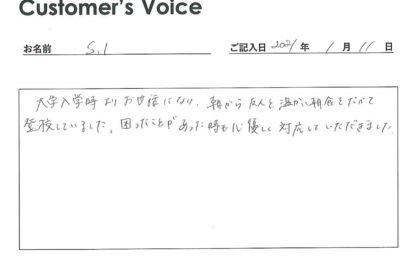 Customer's Voice
お名前 S.I ご記入日 2021 年 1 月 11 日
大学入学時よりお世話になり、朝から友人と温かい朝食をたべて
登校していました。困ったことがあった時も心優しく対応していただきました。